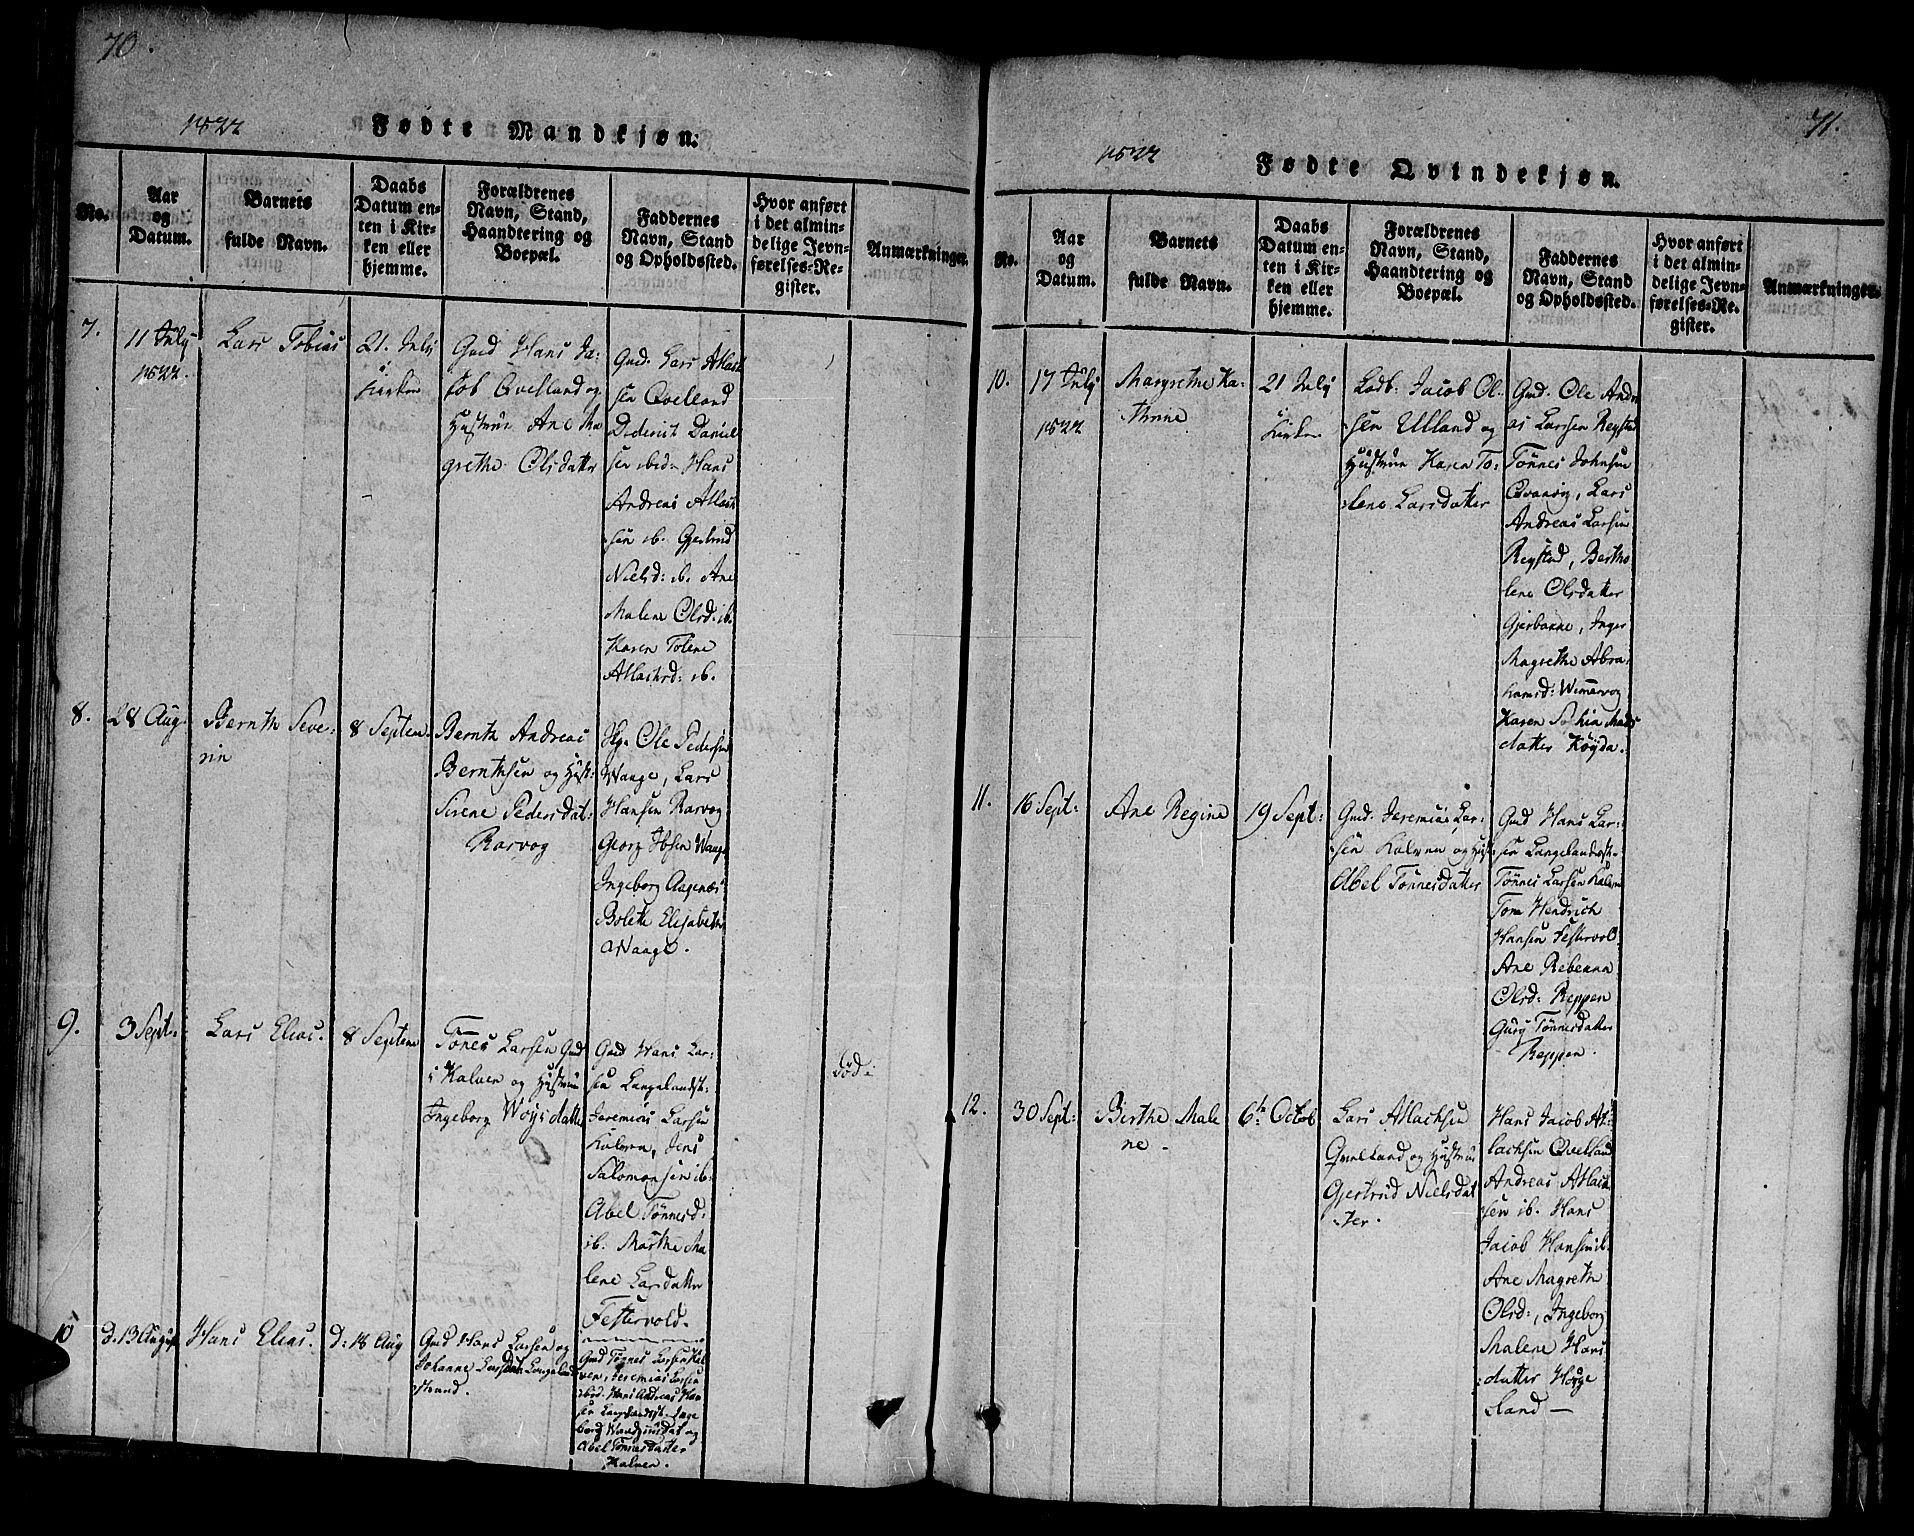 70.
1822
Fødte Mandkjøn.
No.
Aar
og
Datum.
Barnets
fulde Navn.
Daabs
Datum en-
ten i Kir-
ken eller
hjemme.
Forældrenes
Navn, Stand,
Haandtering og
Boepæl.
Faddernes
Navn, Stand
og Opholdssted.
Hvor anført
i det almin-
delige Jevn-
førelses-Re-
gister.
Anmærkninger.
7.
11 July
1822.
Lars Tobias
21. July
i
Kirken
Gmd Hans Ja-
cob Qvelland og
Hustrue Ane Ma
grethe Olsdatter
Gmd. Lars Atlak
sen Qvelland
Dederick Daniel
sen ibid: Hans
Andreas Atlack
sen ib. Gjertrud
Nielsd: ib. Ane
Malene Olsd: ib.
Karen Tolene
Atlacksd: ib.
8.
28 Aug.
Bernth Seve-
rin
8 Septem.
Bernth Andreas
Bernthsen og Hust:
Sirene Pedersdat.
Rarvog
Hg. Ole Pedersen
Waage, Lars
Hansen Rarvog
Georg Ibsen Waage
Ingeborg Aagenæs
Bolette Elisabeth
Waage.
9.
3 Sept:
Lars Elias.
8 Septem
Tönes Larsen Gmd
i Kalven og Hustrue
Ingeborg
Gmd Hans Lar-
sen Langelandst.
Jeremias Larsen
Kalven, Jens
Salomonsen ib.
Abel Tönnesd:
ib. Marthe Ma
lene Larsdatter
Festervold.
död.
10
d. 13 August
Hans Elias.
d: 18 Aug
Gmd Hans Larsen og
Johanne Larsdatter Langeland
strand.
Gmd Tönnes Larsen Kal
ven, Jeremias Larsen
ibid. Hans Andreas Han
sen Langelandsst. Inge
borg
Abel Tönnesdatter
Kalven.
71.
1822
Fødte Qvindekjøn.
No.
Aar
og
Datum.
Barnets
fulde Navn.
Daabs
Datum en-
ten i Kir-
ken eller
hjemme.
Forældrenes
Navn, Stand,
Haandtering og
Boepæl.
Faddernes
Navn, Stand
og Opholdssted.
Hvor anført
i det almin-
delige Jevn-
førelses-Re-
gister.
Anmærkninger.
10.
17 July
1822
Margrethe Ka-
thrine
21 July
i
Kirken
Lodb. Jacob Ol-
sen Ulland og
Hustrue Karen To-
lene Larsdatter
Gmd. Ole Andre
as Larsen Regstad
Tönnes Johnsen
Qvanvig, Lars
Andreas Larsen
Regstad, Bertho
lene Olsdatter
Gjerbakne, Inger
Magrethe Abra
hamsd: Wimervog
Karen Sophia Mads
datter Köyda.
11.
16 Sept:
Ane Regine
19 Sept:
Gmd. Jeremias Lar-
sen Kalven og Hust:
Abel Tönnesdatter
Gmd Hans Lar-
sen Langelandsst.
Tönnes Larsen Kalven
Tom Hendrich
Hansen Festervol
Ane Rebekka
Olsd: Reppen
Gury Tönnesdatter
Reppen.
12.
30 Sept:
Berthe Male
ne
6te Octob
Lars Atlacksen
Qvelland og Hustrue
Gjertrud Nielsdat
ter.
Hans Jacob At-
lacksen Qvelland
Andreas Atlack
sen ib. Hans
Jacob Hansen ib.
Ane Magrethe
Olsd:, Ingeborg
Malene Hans
datter Höge
land